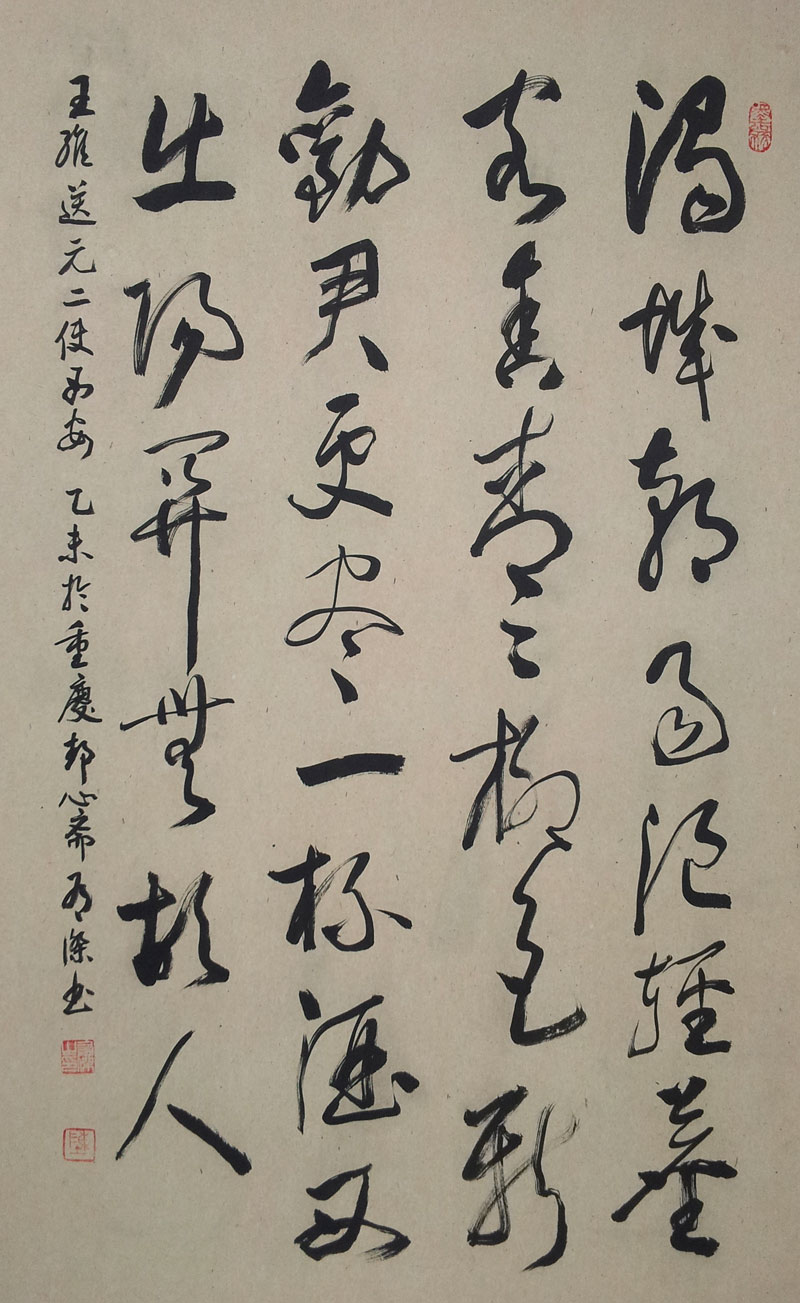 渭城朝雨浥輕塵
客舍青〻柳色新
勸君更尽一杯酒西
出陽關無故人
王維送元二使西安 乙未於重慶心斋书